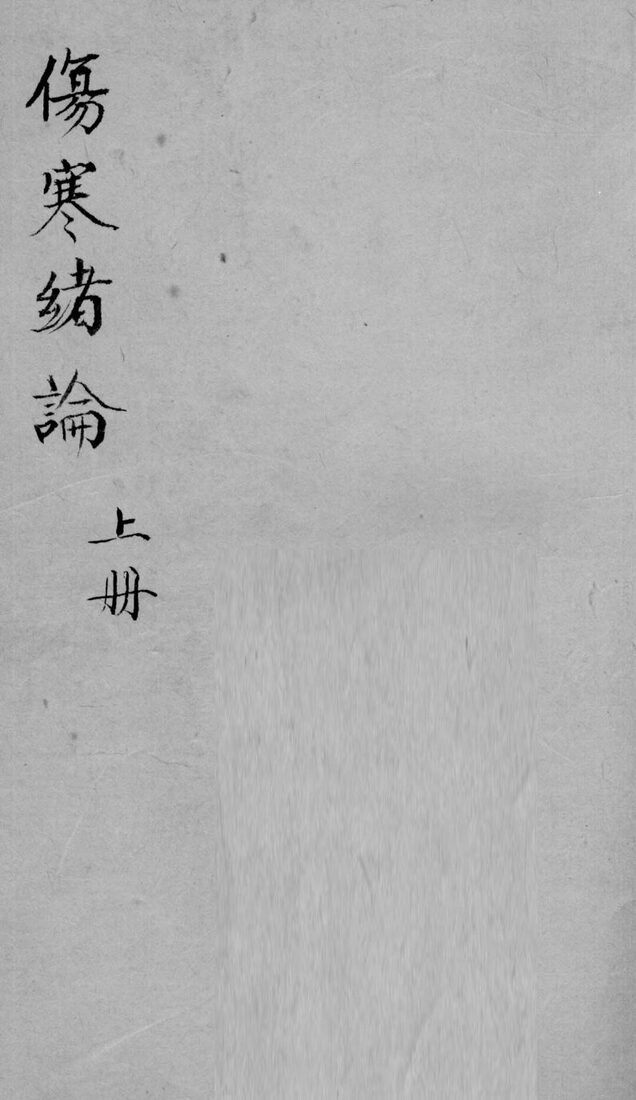 傷寒緒論
上册